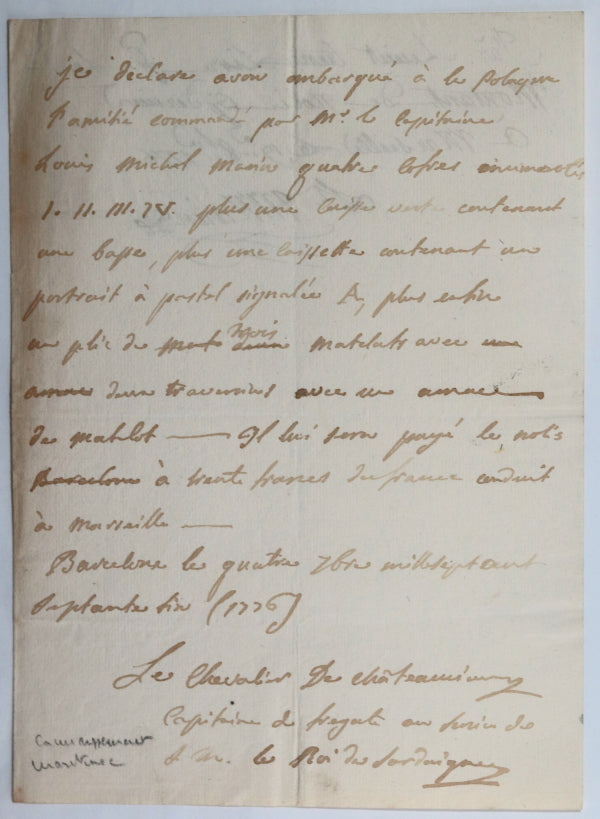 je declare avoir embarqué à la Polaque
l'amitié commandé par Mr. le Capitaine
Louis Michel Marin quatre cofres numerotés
I. II. III. IV. plus une caisse verte contenant
une basse, plus une caissette contenant un
portrait à pastel signalée A, plus enfin
un plic de trois matelats avec
deux traversins avec un amac
de matelot — Il lui sera payé le nolis
Barcelone à trente francs de france conduit
à Marseille —
Barcelone le quatre 7bre mille sept cent
septante six (1776)
Le Chevalier De
Capitaine de fregate au service de
S. M. le Roi de Sardaigne
maritime